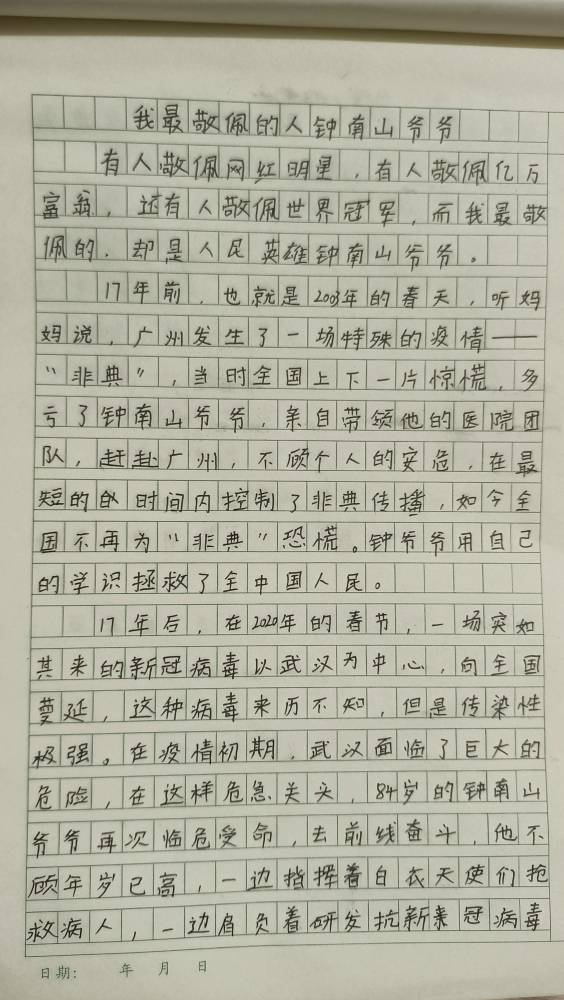 我最敬佩的人钟南山爷爷
有人敬佩网红明星，有人敬佩亿万
富翁，还有人敬佩世界冠军，而我最敬
佩的，却是人民英雄钟南山爷爷。
17年前，也就是2003年的春天，听妈
妈说，广州发生了一场特殊的疫情——
“非典”，当时全国上下一片惊慌，多
亏了钟南山爷爷，亲自带领他的医院团
队，赶赴广州，不顾个人的安危，在最
短的时间内控制了非典传播，如今全
国不再为“非典”恐慌。钟爷爷用自己
的学识拯救了全中国人民。
17年后，在2020年的春节，一场突如
其来的新冠病毒以武汉为中心，向全国
蔓延，这种病毒来历不知，但是传染性
极强。在疫情初期，武汉面临了巨大的
危险，在这样危急关头，84岁的钟南山
爷爷再次临危受命，去前线奋斗，他不
顾年岁已高，一边指挥着白衣天使们抢
救病人，一边肩负着研发抗新冠病毒
日期： 年 月 日